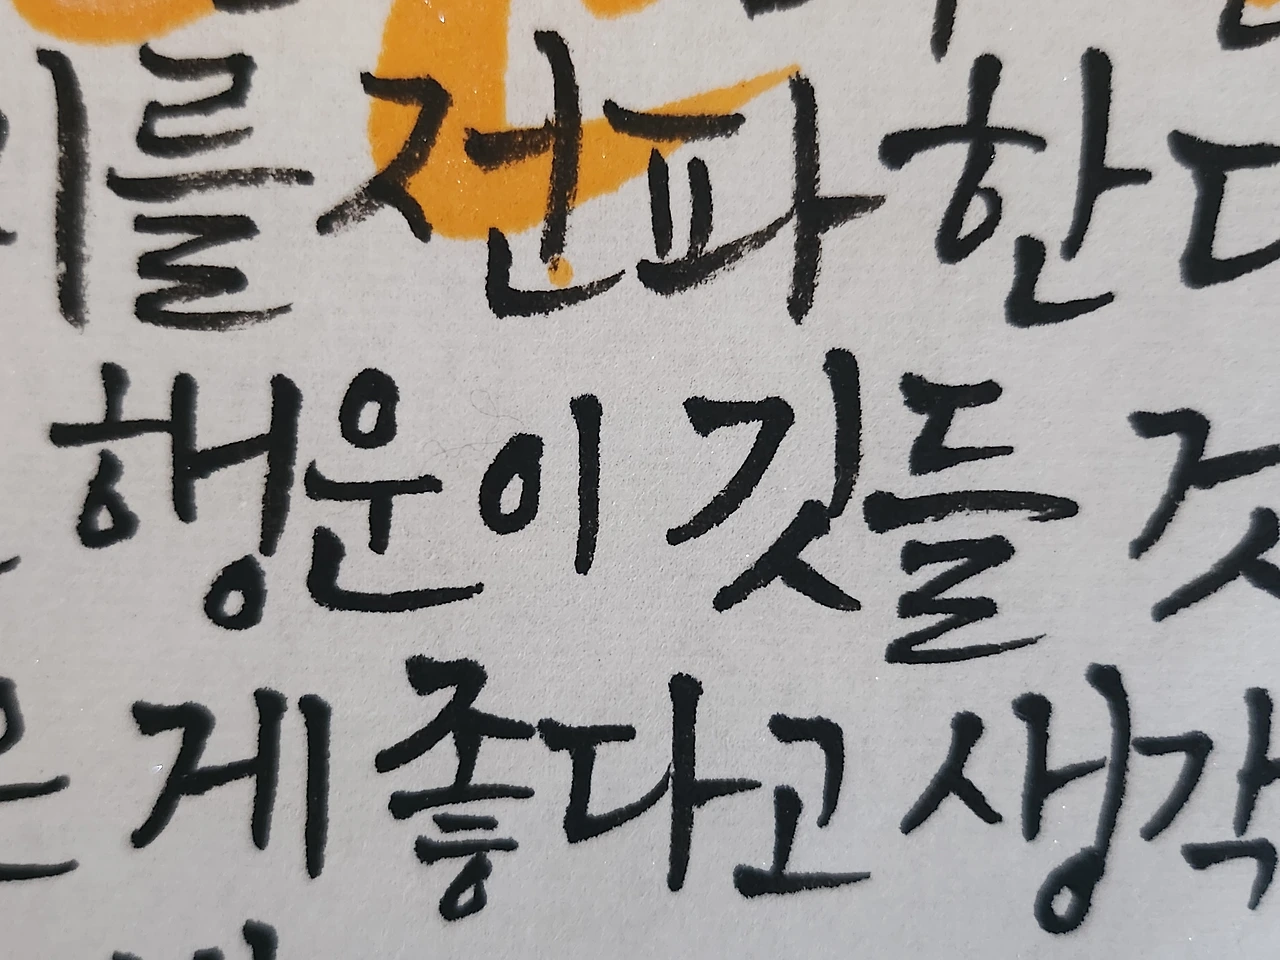 를 전파 한다
행운이 깃들 것
은 게 좋다고 생각